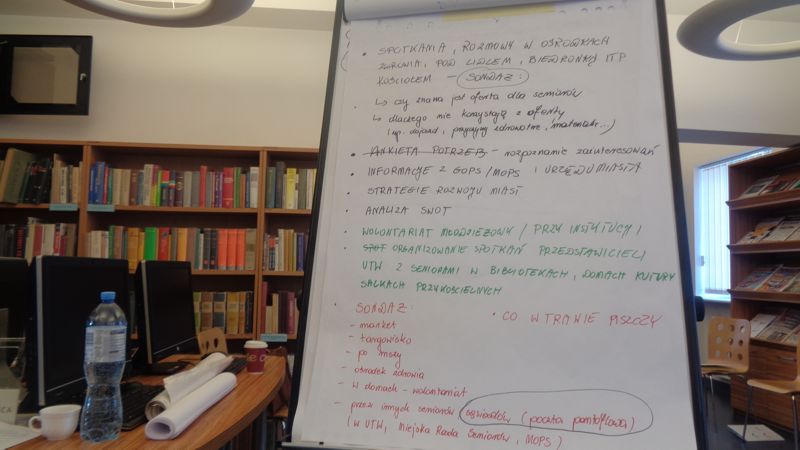 • SPOTKANIA, ROZMOWY W OŚRODKACH
ZDROWIA, POD LIDLEM, BIEDRONKĄ ITP
KOŚCIOŁEM – SONDAŻ:
↳ czy znana jest oferta dla seniorów
↳ dlaczego nie korzystają z oferty
(np. dojazd, przyczyny zdrowotne, materialn...)
• ANKIETA POTRZEB – rozpoznanie zainteresowań
• INFORMACJE Z GOPS/MOPS I URZĘDU MIASTA
• STRATEGIE ROZWOJU MIAST
• ANALIZA SWOT
• WOLONTARIAT MŁODZIEŻOWY / PRZY INSTYTUCJI
• SPOT ORGANIZOWANIE SPOTKAŃ PRZEDSTAWICIELI
UTW Z SENIORAMI W BIBLIOTEKACH, DOMACH KULTURY
SALKACH PRZYKOŚCIELNYCH
• SONDAŻ:
– market
– targowisko
– po mszy
– ośrodek zdrowia
– w domach – wolontariat
– przez innych seniorów (poczta pantoflowa)
(w UTW, Miejska Rada Seniorów, MOPS)
• CO W TRAWIE PISZCZY